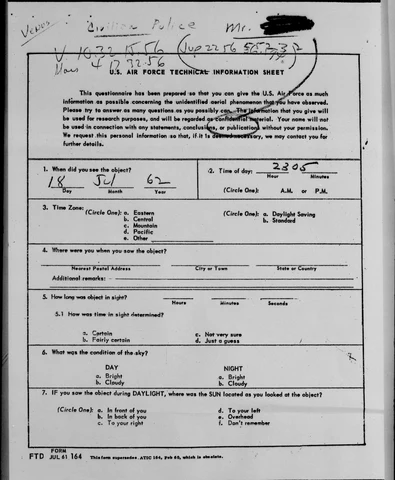 Venus Civilian Police Mr.
V 10.32 15.56 (Jup 22 56
Mars 4 17 32.56
U.S. AIR FORCE TECHNICAL INFORMATION SHEET
This questionnaire has been prepared so that you can give the U.S. Air Force as much
information as possible concerning the unidentified aerial phenomenon that you have observed.
Please try to answer as many questions as you possibly can. The information that you give will
be used for research purposes, and will be regarded as confidential material. Your name will not
be used in connection with any statements, conclusions, or publications without your permission.
We request this personal information so that, if it is deemed necessary, we may contact you for
further details.
1. When did you see the object?
18 Jul 62
Day Month Year
2. Time of day: 2305
Hour Minutes
(Circle One): A.M. or P.M.
3. Time Zone:
(Circle One): a. Eastern
b. Central
c. Mountain
d. Pacific
e. Other
(Circle One): a. Daylight Saving
b. Standard
4. Where were you when you saw the object?
Nearest Postal Address City or Town State or Country
Additional remarks:
5. How long was object in sight?
Hours Minutes Seconds
5.1 How was time in sight determined?
a. Certain c. Not very sure
b. Fairly certain d. Just a guess
6. What was the condition of the sky?
DAY NIGHT
a. Bright a. Bright
b. Cloudy b. Cloudy
7. IF you saw the object during DAYLIGHT, where was the SUN located as you looked at the object?
(Circle One): a. In front of you d. To your left
b. In back of you e. Overhead
c. To your right f. Don't remember
FORM
FTD JUL 61 164 This form supersedes ATIC 164, Feb 60, which is obsolete.